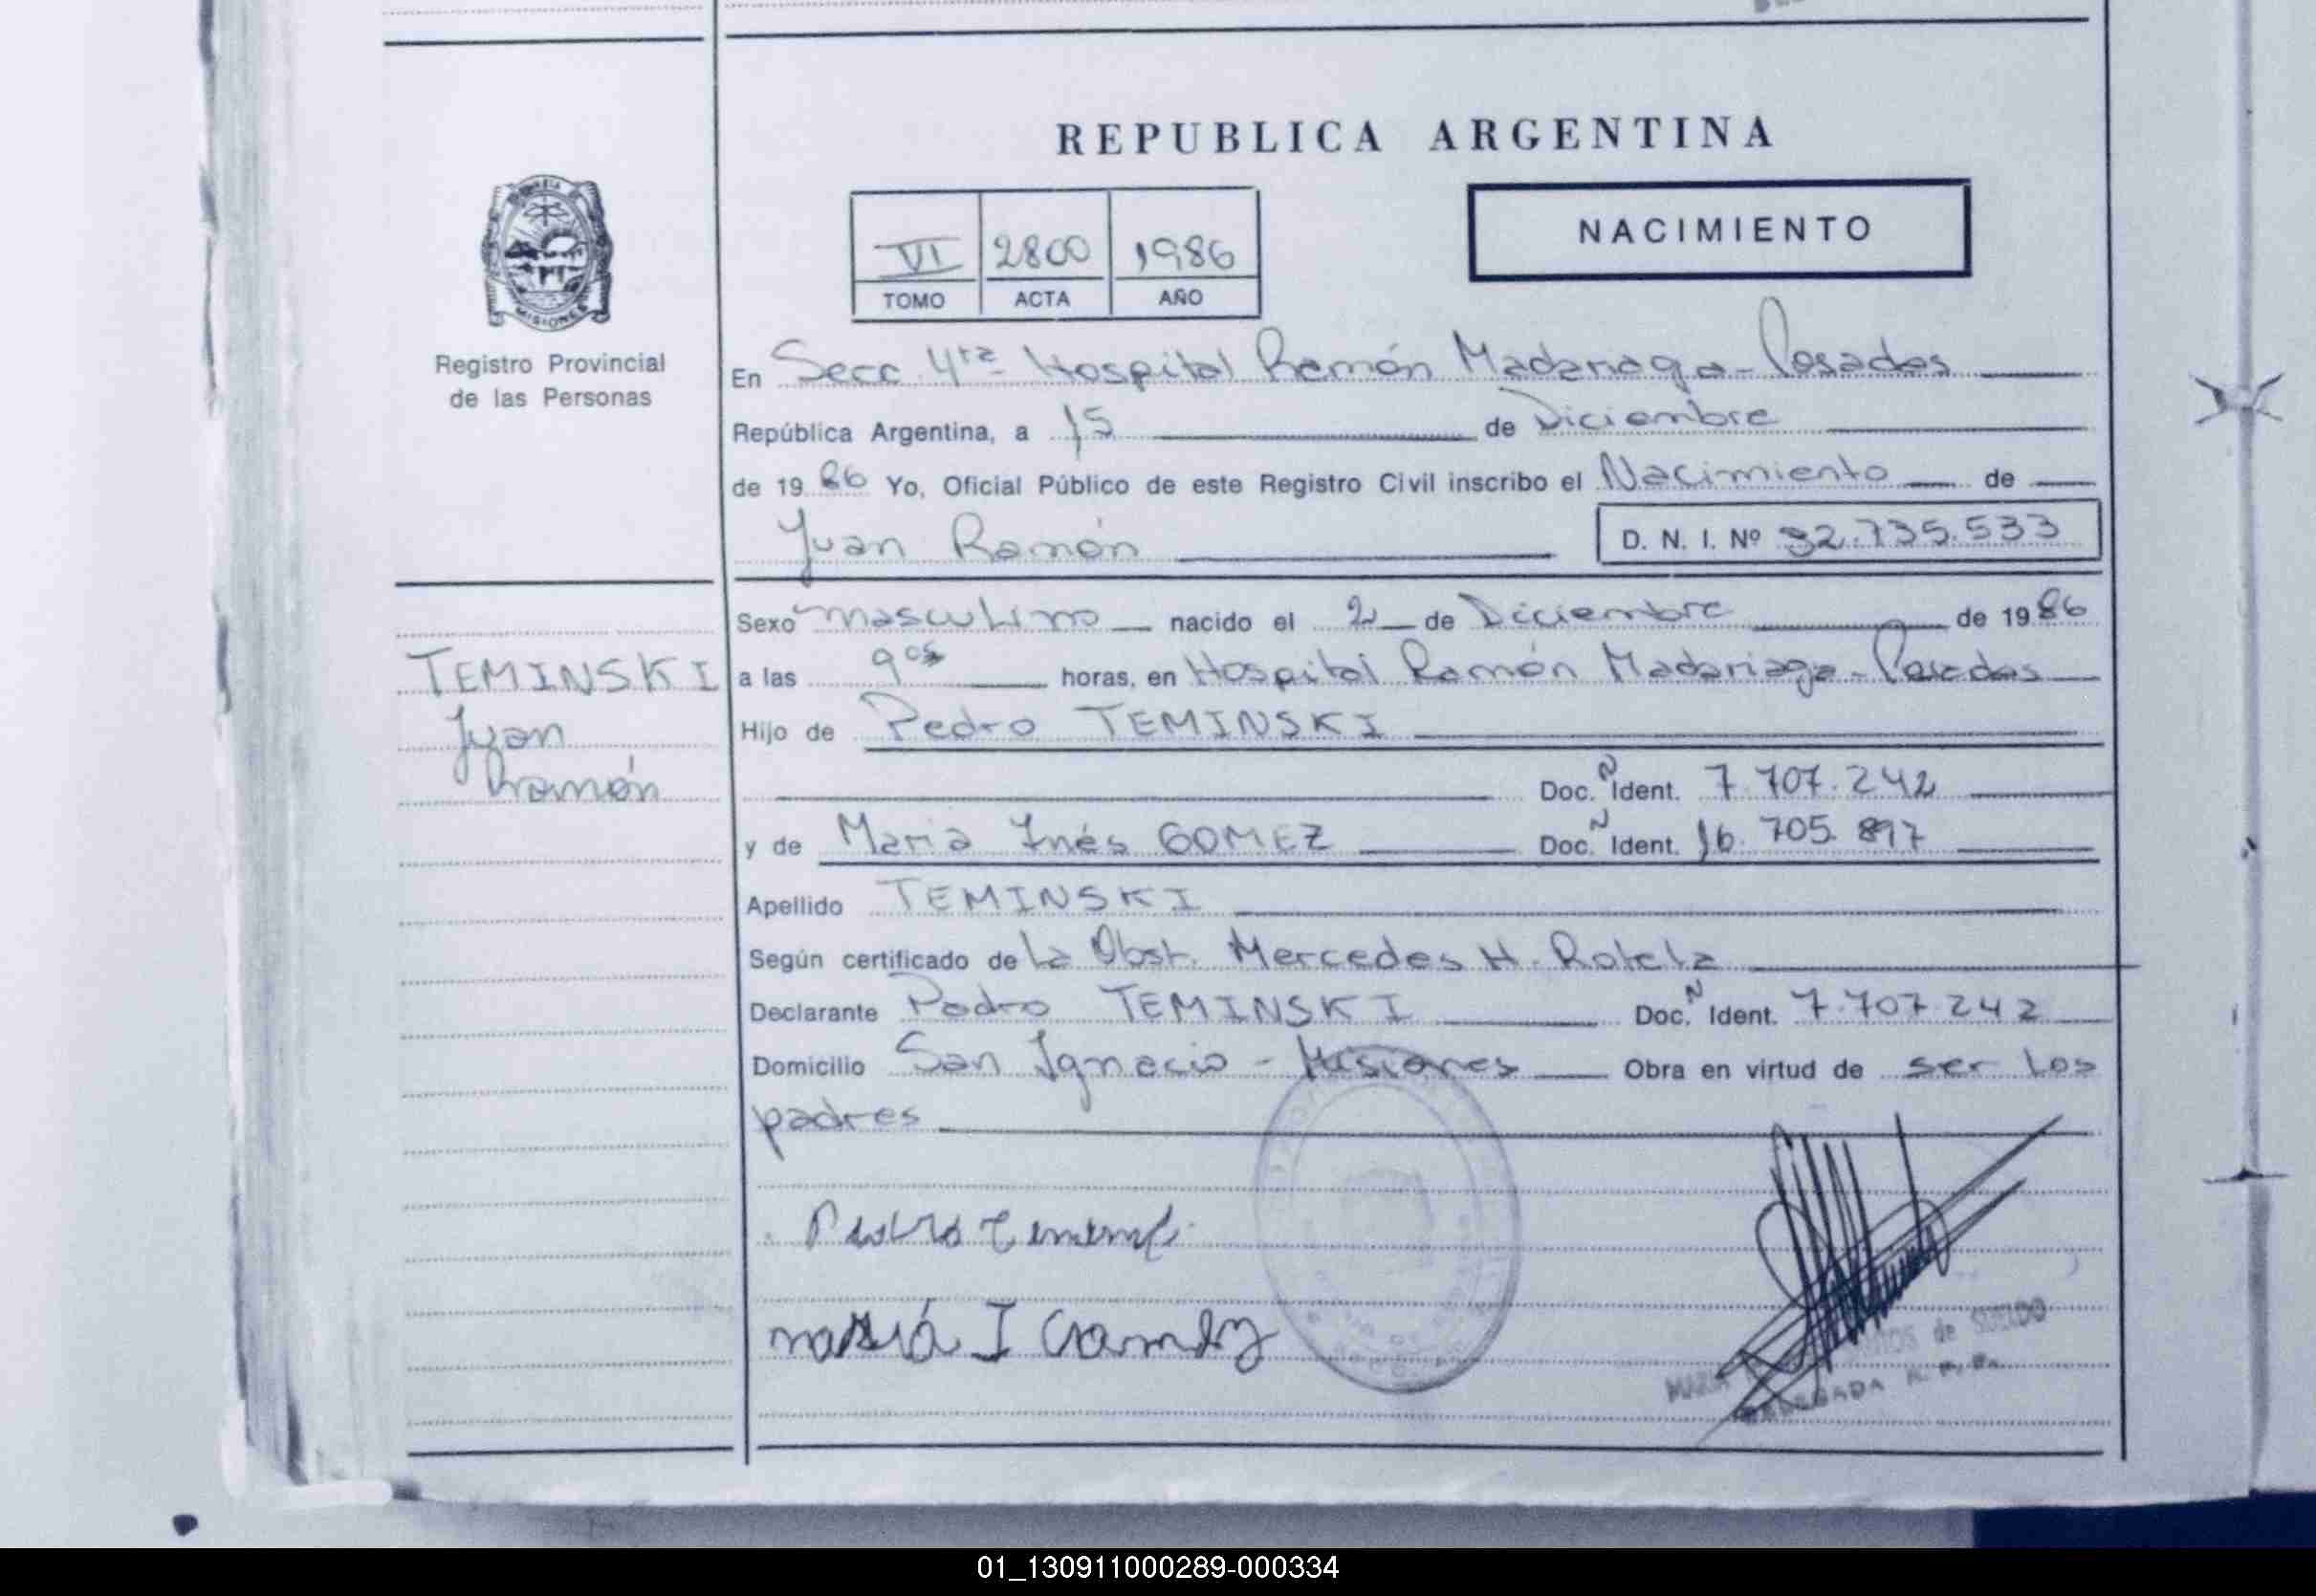 REPUBLICA ARGENTINA
NACIMIENTO
VI 2800 1986
TOMO ACTA AÑO
MISIONES
Registro Provincial
de las Personas
En Secc 4ta Hospital Ramón Madariaga - Posadas
República Argentina, a 15 de Diciembre
de 1986 Yo, Oficial Público de este Registro Civil inscribo el Nacimiento de
Juan Ramón D. N. I. Nº 32.735.533
Sexo masculino nacido el 2 de Diciembre de 1986
TEMINSKI
Juan
Ramón
a las 9 05 horas, en Hospital Ramón Madariaga - Posadas
Hijo de Pedro TEMINSKI
Doc. N Ident. 7.707.242
y de Maria Inés GOMEZ Doc. N Ident. 16.705.897
Apellido TEMINSKI
Según certificado de La Obst. Mercedes H. Rotela
Declarante Pedro TEMINSKI Doc. N Ident. 7.707.242
Domicilio San Ignacio - Misiones Obra en virtud de ser los
padres
MARIA de SUELDO
R. P. P.
01_130911000289-000334